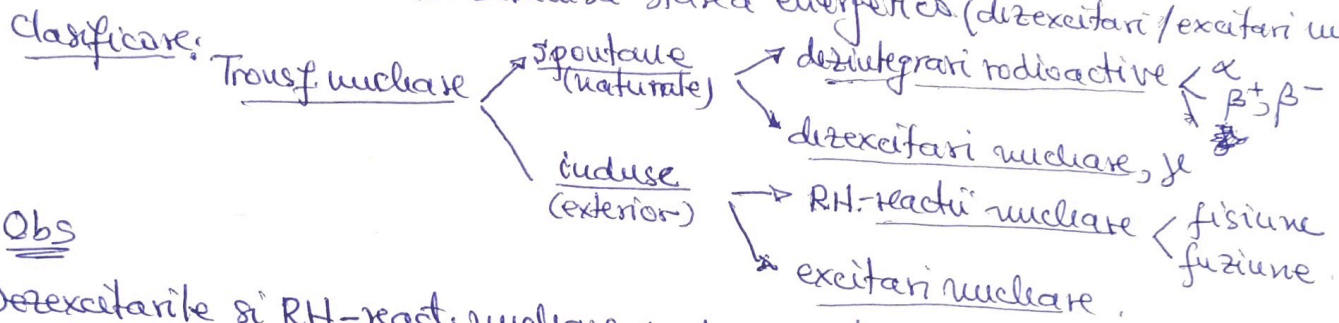 energetica (dizexcitari/excitari
Clasificare:
Transf. nucleare
spontane
(naturale)
dezintegrari radioactive
α
β⁺, β⁻
dezexcitari nucleare, γ
induse
(exterior)
RN-reactii nucleare
fisiune
fuziune
excitari nucleare.
Obs
Dezexcitarile si RN-react. nucleare